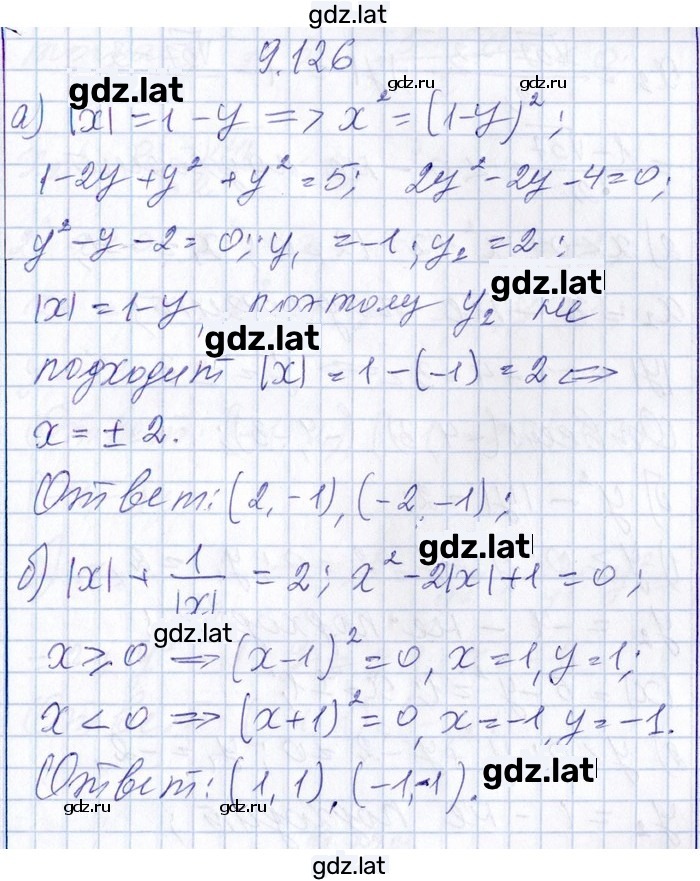 gdz.lat
9.126
gdz.lat gdz.ru gdz.ru
а) |x| = 1 - y => x² = (1-y)²;
1 - 2y + y² + y² = 5; 2y² - 2y - 4 = 0;
y² - y - 2 = 0; y₁ = -1; y₂ = 2;
gdz.lat
|x| = 1 - y, поэтому y₂ не
gdz.lat
подходит |x| = 1 - (-1) = 2 <=>
x = ± 2.
Ответ: (2, -1), (-2, -1);
gdz.lat
б) |x| + 1/|x| = 2; x² - 2|x| + 1 = 0;
gdz.lat
x ⩾ 0 => (x-1)² = 0, x = 1, y = 1;
x < 0 => (x+1)² = 0, x = -1, y = -1.
gdz.lat
Ответ: (1, 1), (-1, -1).
gdz.ru gdz.ru
gdz.lat